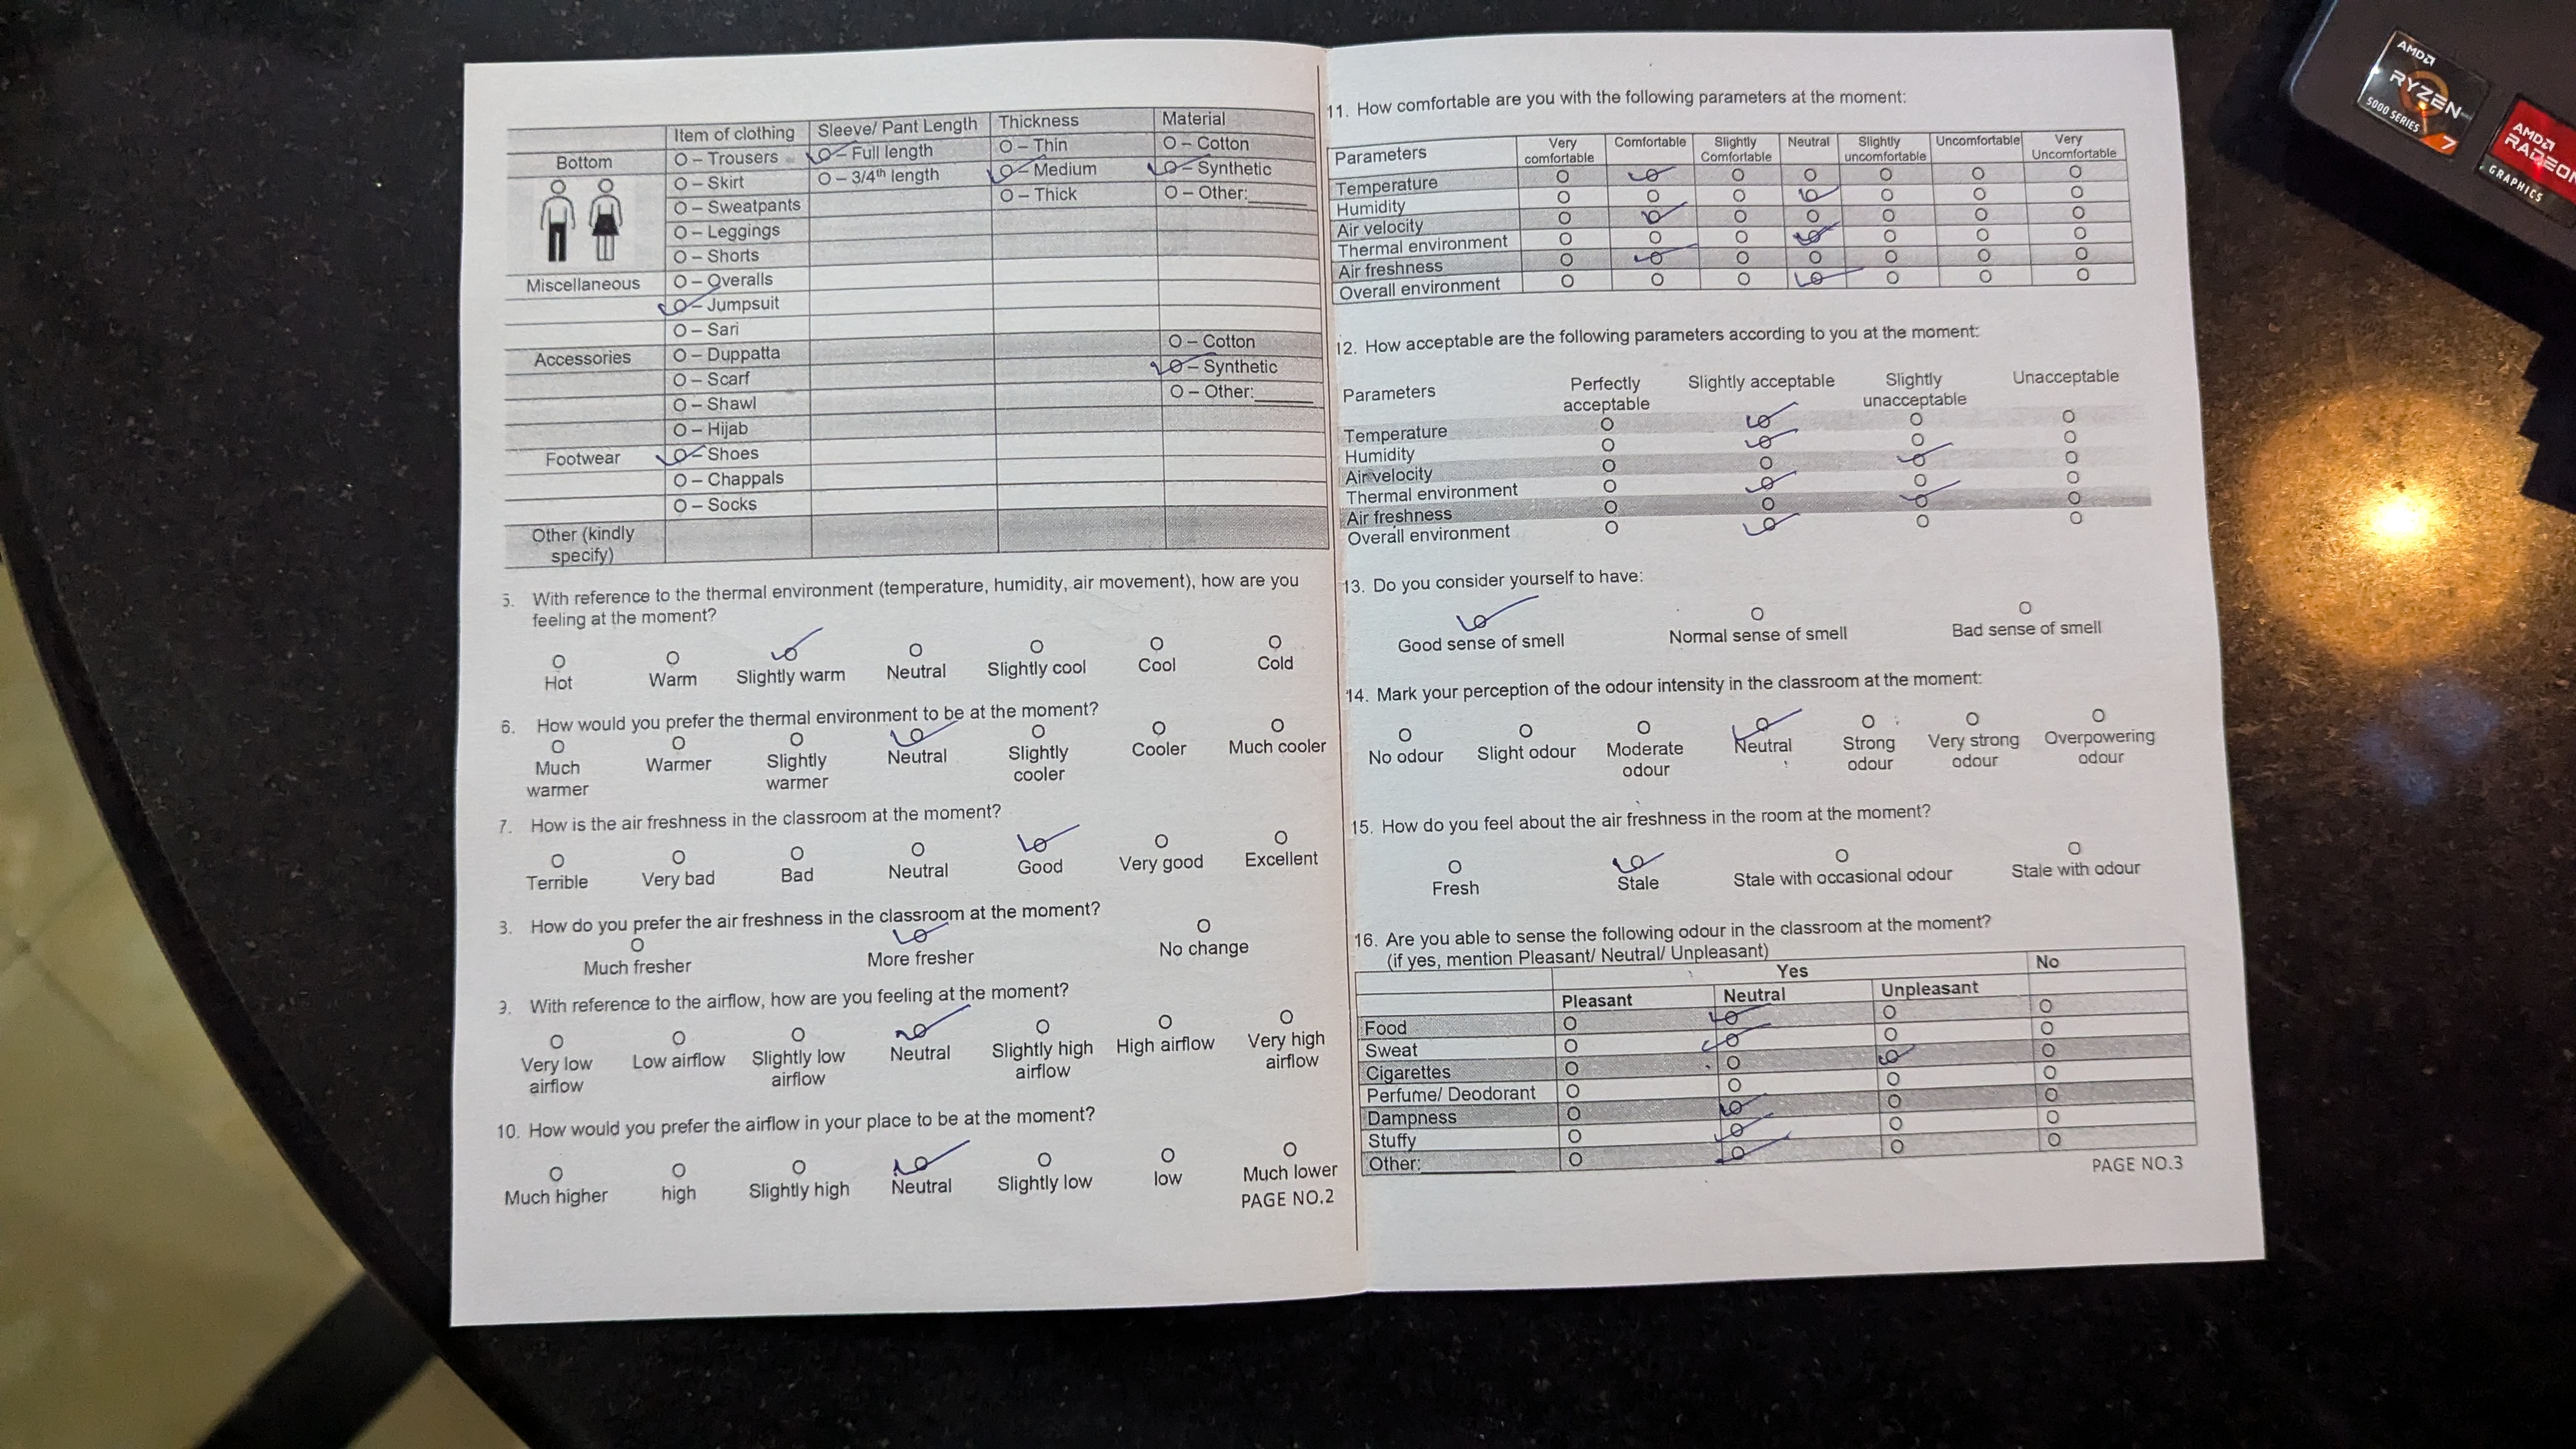 Item of clothing Sleeve/ Pant Length Thickness Material
Bottom O – Trousers O – Full length O – Thin O – Cotton
O – Skirt O – 3/4th length O – Medium O – Synthetic
O – Sweatpants O – Thick O – Other:______
O – Leggings
O – Shorts
Miscellaneous O – Overalls
O – Jumpsuit
O – Sari
Accessories O – Duppatta O – Cotton
O – Scarf O – Synthetic
O – Shawl O – Other:______
O – Hijab
Footwear O – Shoes
O – Chappals
O – Socks
Other (kindly
specify)
5. With reference to the thermal environment (temperature, humidity, air movement), how are you
feeling at the moment?
O O O O O O O
Hot Warm Slightly warm Neutral Slightly cool Cool Cold
6. How would you prefer the thermal environment to be at the moment?
O O O O O O O
Much Warmer Slightly Neutral Slightly Cooler Much cooler
warmer warmer cooler
7. How is the air freshness in the classroom at the moment?
O O O O O O O
Terrible Very bad Bad Neutral Good Very good Excellent
3. How do you prefer the air freshness in the classroom at the moment?
O O O
Much fresher More fresher No change
9. With reference to the airflow, how are you feeling at the moment?
O O O O O O O
Very low Low airflow Slightly low Neutral Slightly high High airflow Very high
airflow airflow airflow airflow
10. How would you prefer the airflow in your place to be at the moment?
O O O O O O O
Much higher high Slightly high Neutral Slightly low low Much lower
PAGE NO.2
11. How comfortable are you with the following parameters at the moment:
Parameters Very Comfortable Slightly Neutral Slightly Uncomfortable Very
comfortable Comfortable uncomfortable Uncomfortable
Temperature O O O O O O O
Humidity O O O O O O O
Air velocity O O O O O O O
Thermal environment O O O O O O O
Air freshness O O O O O O O
Overall environment O O O O O O O
12. How acceptable are the following parameters according to you at the moment:
Parameters Perfectly Slightly acceptable Slightly Unacceptable
acceptable unacceptable
Temperature O O O O
Humidity O O O O
Air velocity O O O O
Thermal environment O O O O
Air freshness O O O O
Overall environment O O O O
13. Do you consider yourself to have:
O O O
Good sense of smell Normal sense of smell Bad sense of smell
14. Mark your perception of the odour intensity in the classroom at the moment:
O O O O O O O
No odour Slight odour Moderate Neutral Strong Very strong Overpowering
odour odour odour odour
15. How do you feel about the air freshness in the room at the moment?
O O O O
Fresh Stale Stale with occasional odour Stale with odour
16. Are you able to sense the following odour in the classroom at the moment?
(if yes, mention Pleasant/ Neutral/ Unpleasant)
Yes No
Pleasant Neutral Unpleasant
Food O O O O
Sweat O O O O
Cigarettes O O O O
Perfume/ Deodorant O O O O
Dampness O O O O
Stuffy O O O O
Other:__________ O O O O
PAGE NO.3
AMD
RYZEN
5000 SERIES 7
AMD
RADEON
GRAPHICS